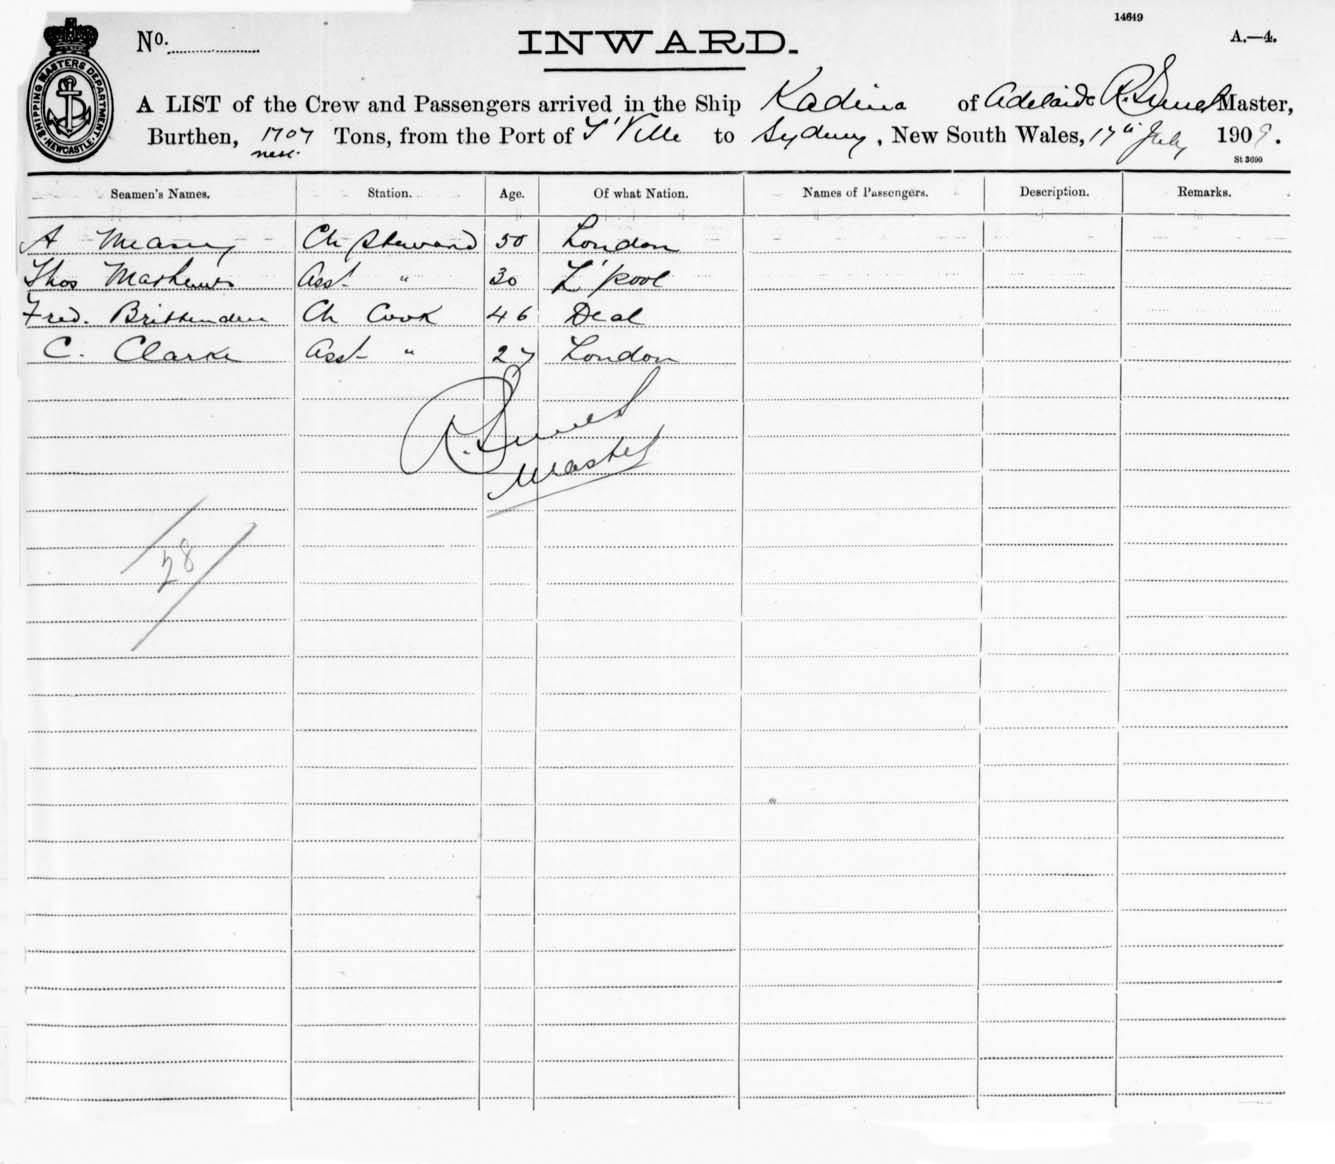 14649
No.
INWARD.
A.—4.
SHIPPING MASTERS DEPARTMENT NEWCASTLE
A LIST of the Crew and Passengers arrived in the Ship Kadina of Adelaide R. Master,
Burthen, 1707 Tons, from the Port of T'Ville to Sydney, New South Wales, 17th July 1909.
nett.
St 3690
Seamen's Names. Station. Age. Of what Nation. Names of Passengers. Description. Remarks.
A Ch Steward 50 London
Thos Mathews Asst " 30 L'pool
Fred. Brittenden Ch Cook 46 Deal
C. Clarke Asst " 27 London
R.
Master
28